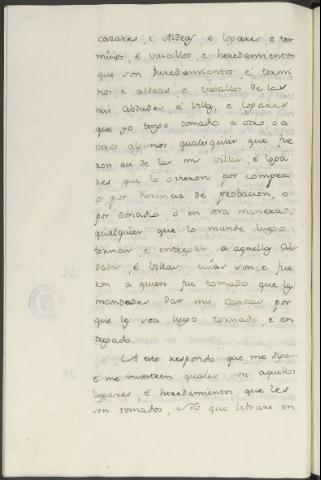 cazares, e Aldeas e lopares e ter
minos, e vasallos, e heredamientos
que son heredamientos, e termi
nos e aldeas e vasallos de las
mis Abdades e Villas, e lopares
que yo tengo tomado a otro o a
otros algunos qualesquier que fue
ron au de las mis villas, e lopa
res que lo ovieron por compra
o por herencia de
por donadio, o en otra manera
qualquier que lo mande luego
tornar e entregar a aquellas Ab
dades, e Villas, cuias son, e fue
ron a quien fue tomado que les
mandades dar mis Cartas por
que les sea luego tornado e en
tregado.
A esto respondo que me digan
e me muestren quales son aquellos
lopares e heredamientos que les
son tomados, e Yo que librare en